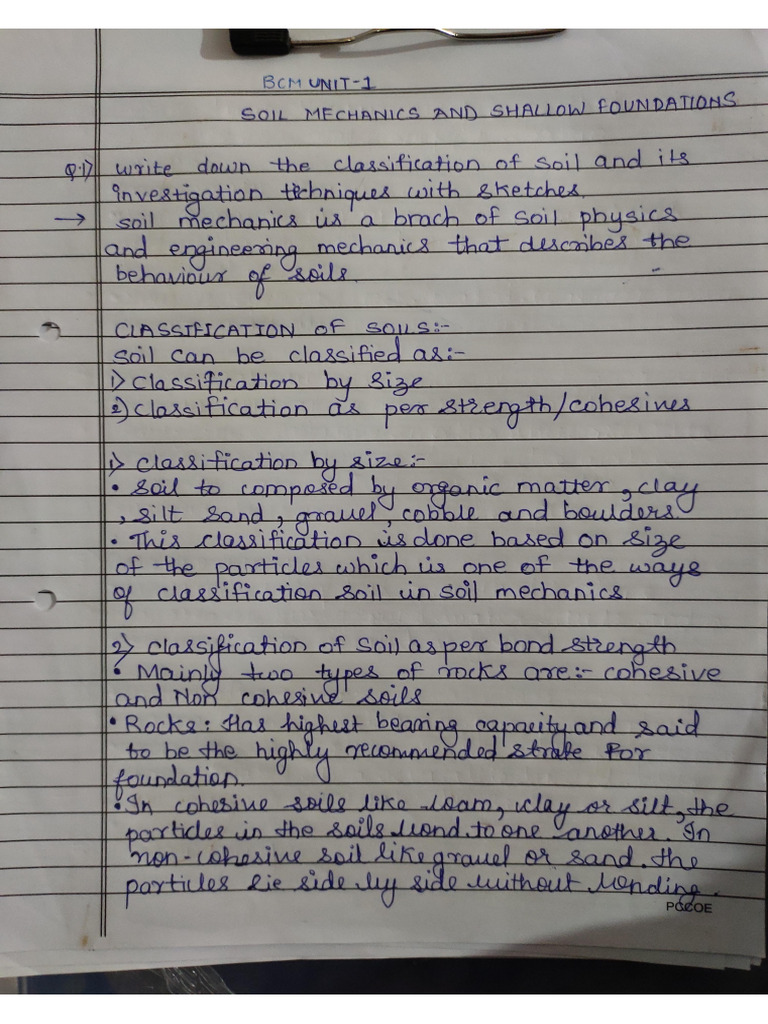 BCM UNIT-1
SOIL MECHANICS AND SHALLOW FOUNDATIONS
Q.1) write down the classification of soil and its
investigation techniques with sketches.
→ soil mechanics is a brach of soil physics
and engineering mechanics that describes the
behaviour of soils.
CLASSIFICATION OF SOILS:-
soil can be classified as:-
1) classification by size
2) classification as per strength/cohesives
1) classification by size:-
• soil to composed by organic matter, clay
, silt sand, gravel, cobble and boulders.
• This classification is done based on size
of the particles which is one of the ways
of classification soil in soil mechanics
2) classification of soil as per bond strength
• Mainly two types of rocks are:- cohesive
and Non cohesive soils
• Rocks: Has highest bearing capacity and said
to be the highly recommended strate for
foundation.
• In cohesive soils like loam, clay or silt, the
particles in the soils bond to one another. In
non-cohesive soil like gravel or sand. the
particles lie side by side without bonding.
PCCOE